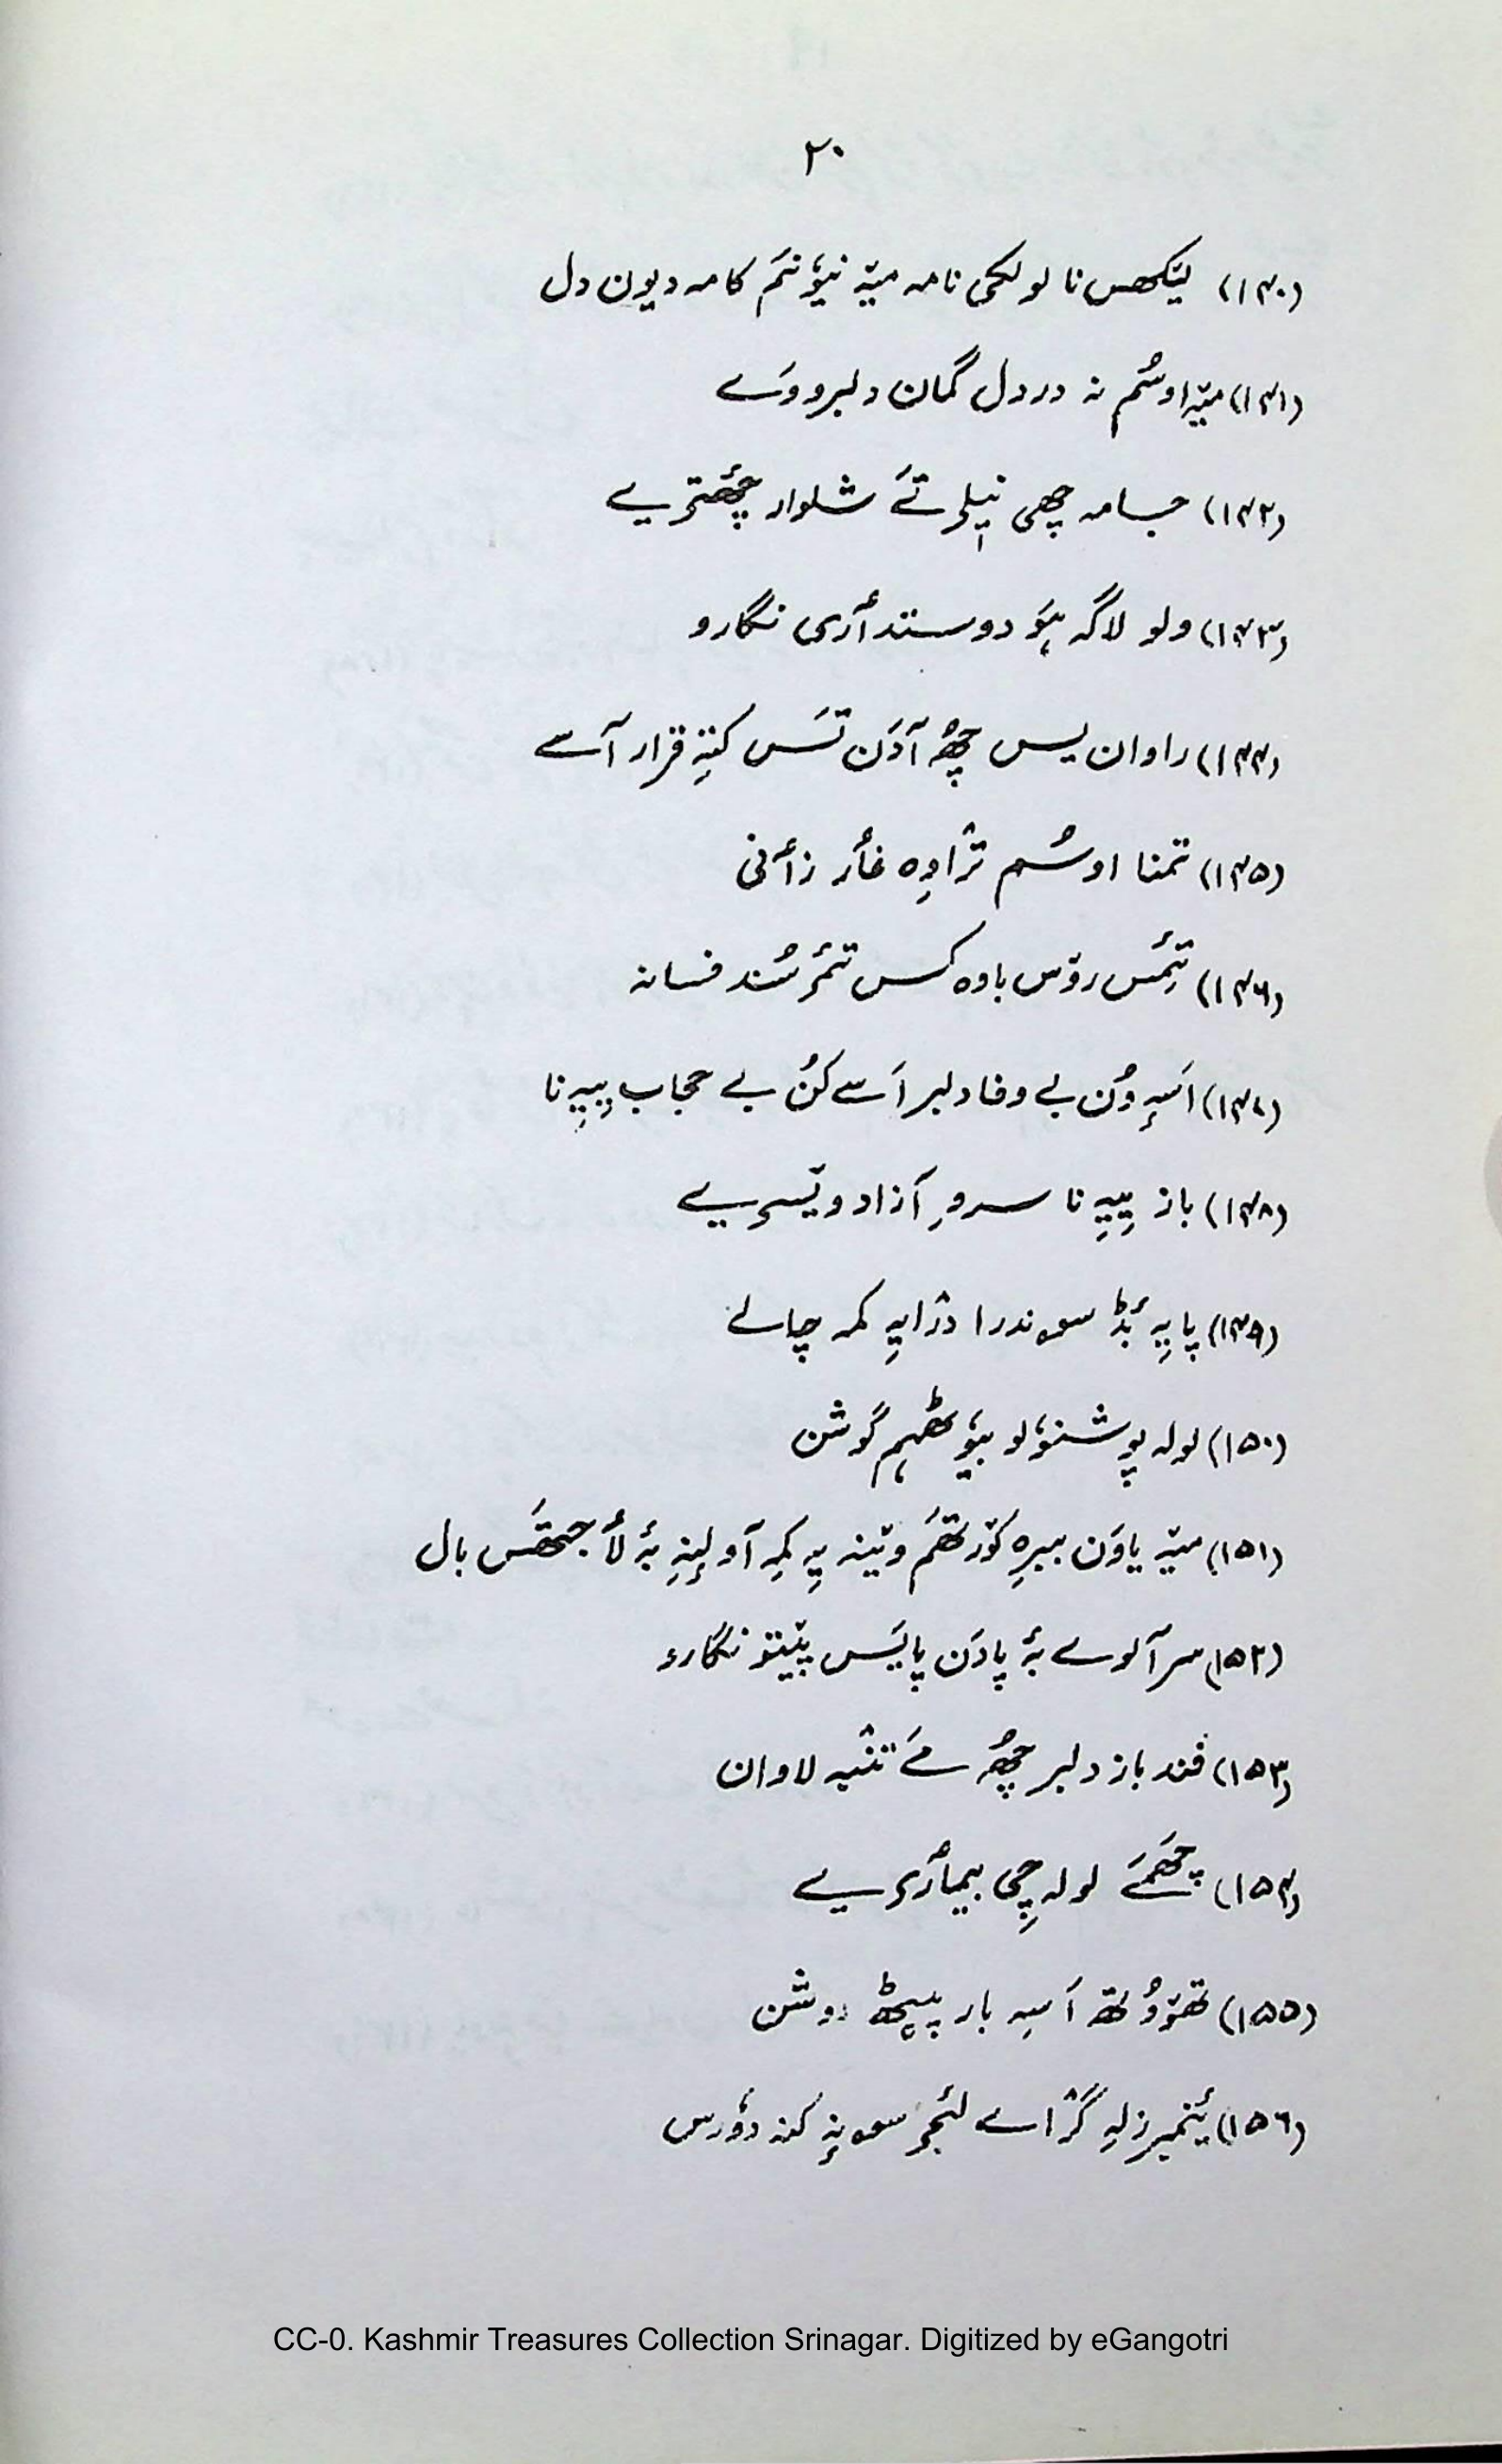 ۲۰
(۱۴۰) لیٚکھس نا لولکی نامہ میٚہ نیوٗنم کامہ دیون دل
(۱۴۱) میٚہ اوسُم نہ در دل گمان دلبرو وَے
(۱۴۲) جامہ چھی نیٖلۍ تَے شلوار چھٔتۍ یے
(۱۴۳) ولو لاگہ ہیوَ دوستدأری نگارو
(۱۴۴) راوان یس چھُ آدَن تَس کتہِ قرار آسے
(۱۴۵) تمنا اوسُم ترٛاوِہ غأر زأنی
(۱۴۶) تِمَس روٚس باوہ کس تمۍ سُند فسانہ
(۱۴۷) اَسہِ وُن بے وفا دلبر اَسے کُن بے حجاب یِیہِ نا
(۱۴۸) باز یِیہِ نا سروِ آزاد ویٚسۍ یے
(۱۴۹) پایِہ بٔڈ سوندرا درٛایہِ کمہ چالے
(۱۵۰) لولہ پوشنوٗلو بیوٗٹھہم گوشن
(۱۵۱) میٚہ یاوَن ببرِہ کوٚرتھَم ویٚنہ یہِ کمہِ آولِنہِ بہٕ لأجتھَس بال
(۱۵۲) سر آلوے بہٕ پادَن پایَس پیٚیتو نگارو
(۱۵۳) فند باز دلبر چھُ مےَ تنٛبہ لاوان
(۱۵۴) چھَمَے لولہ چِی بیمأرۍ یے
(۱۵۵) تھوٚوُتھ اَسہِ بار پیٹھ روشن
(۱۵۶) ینٔمبرزلہِ گرٛاے لٔجۍ سونہِ کنہ دوٗرس
CC-0. Kashmir Treasures Collection Srinagar. Digitized by eGangotri